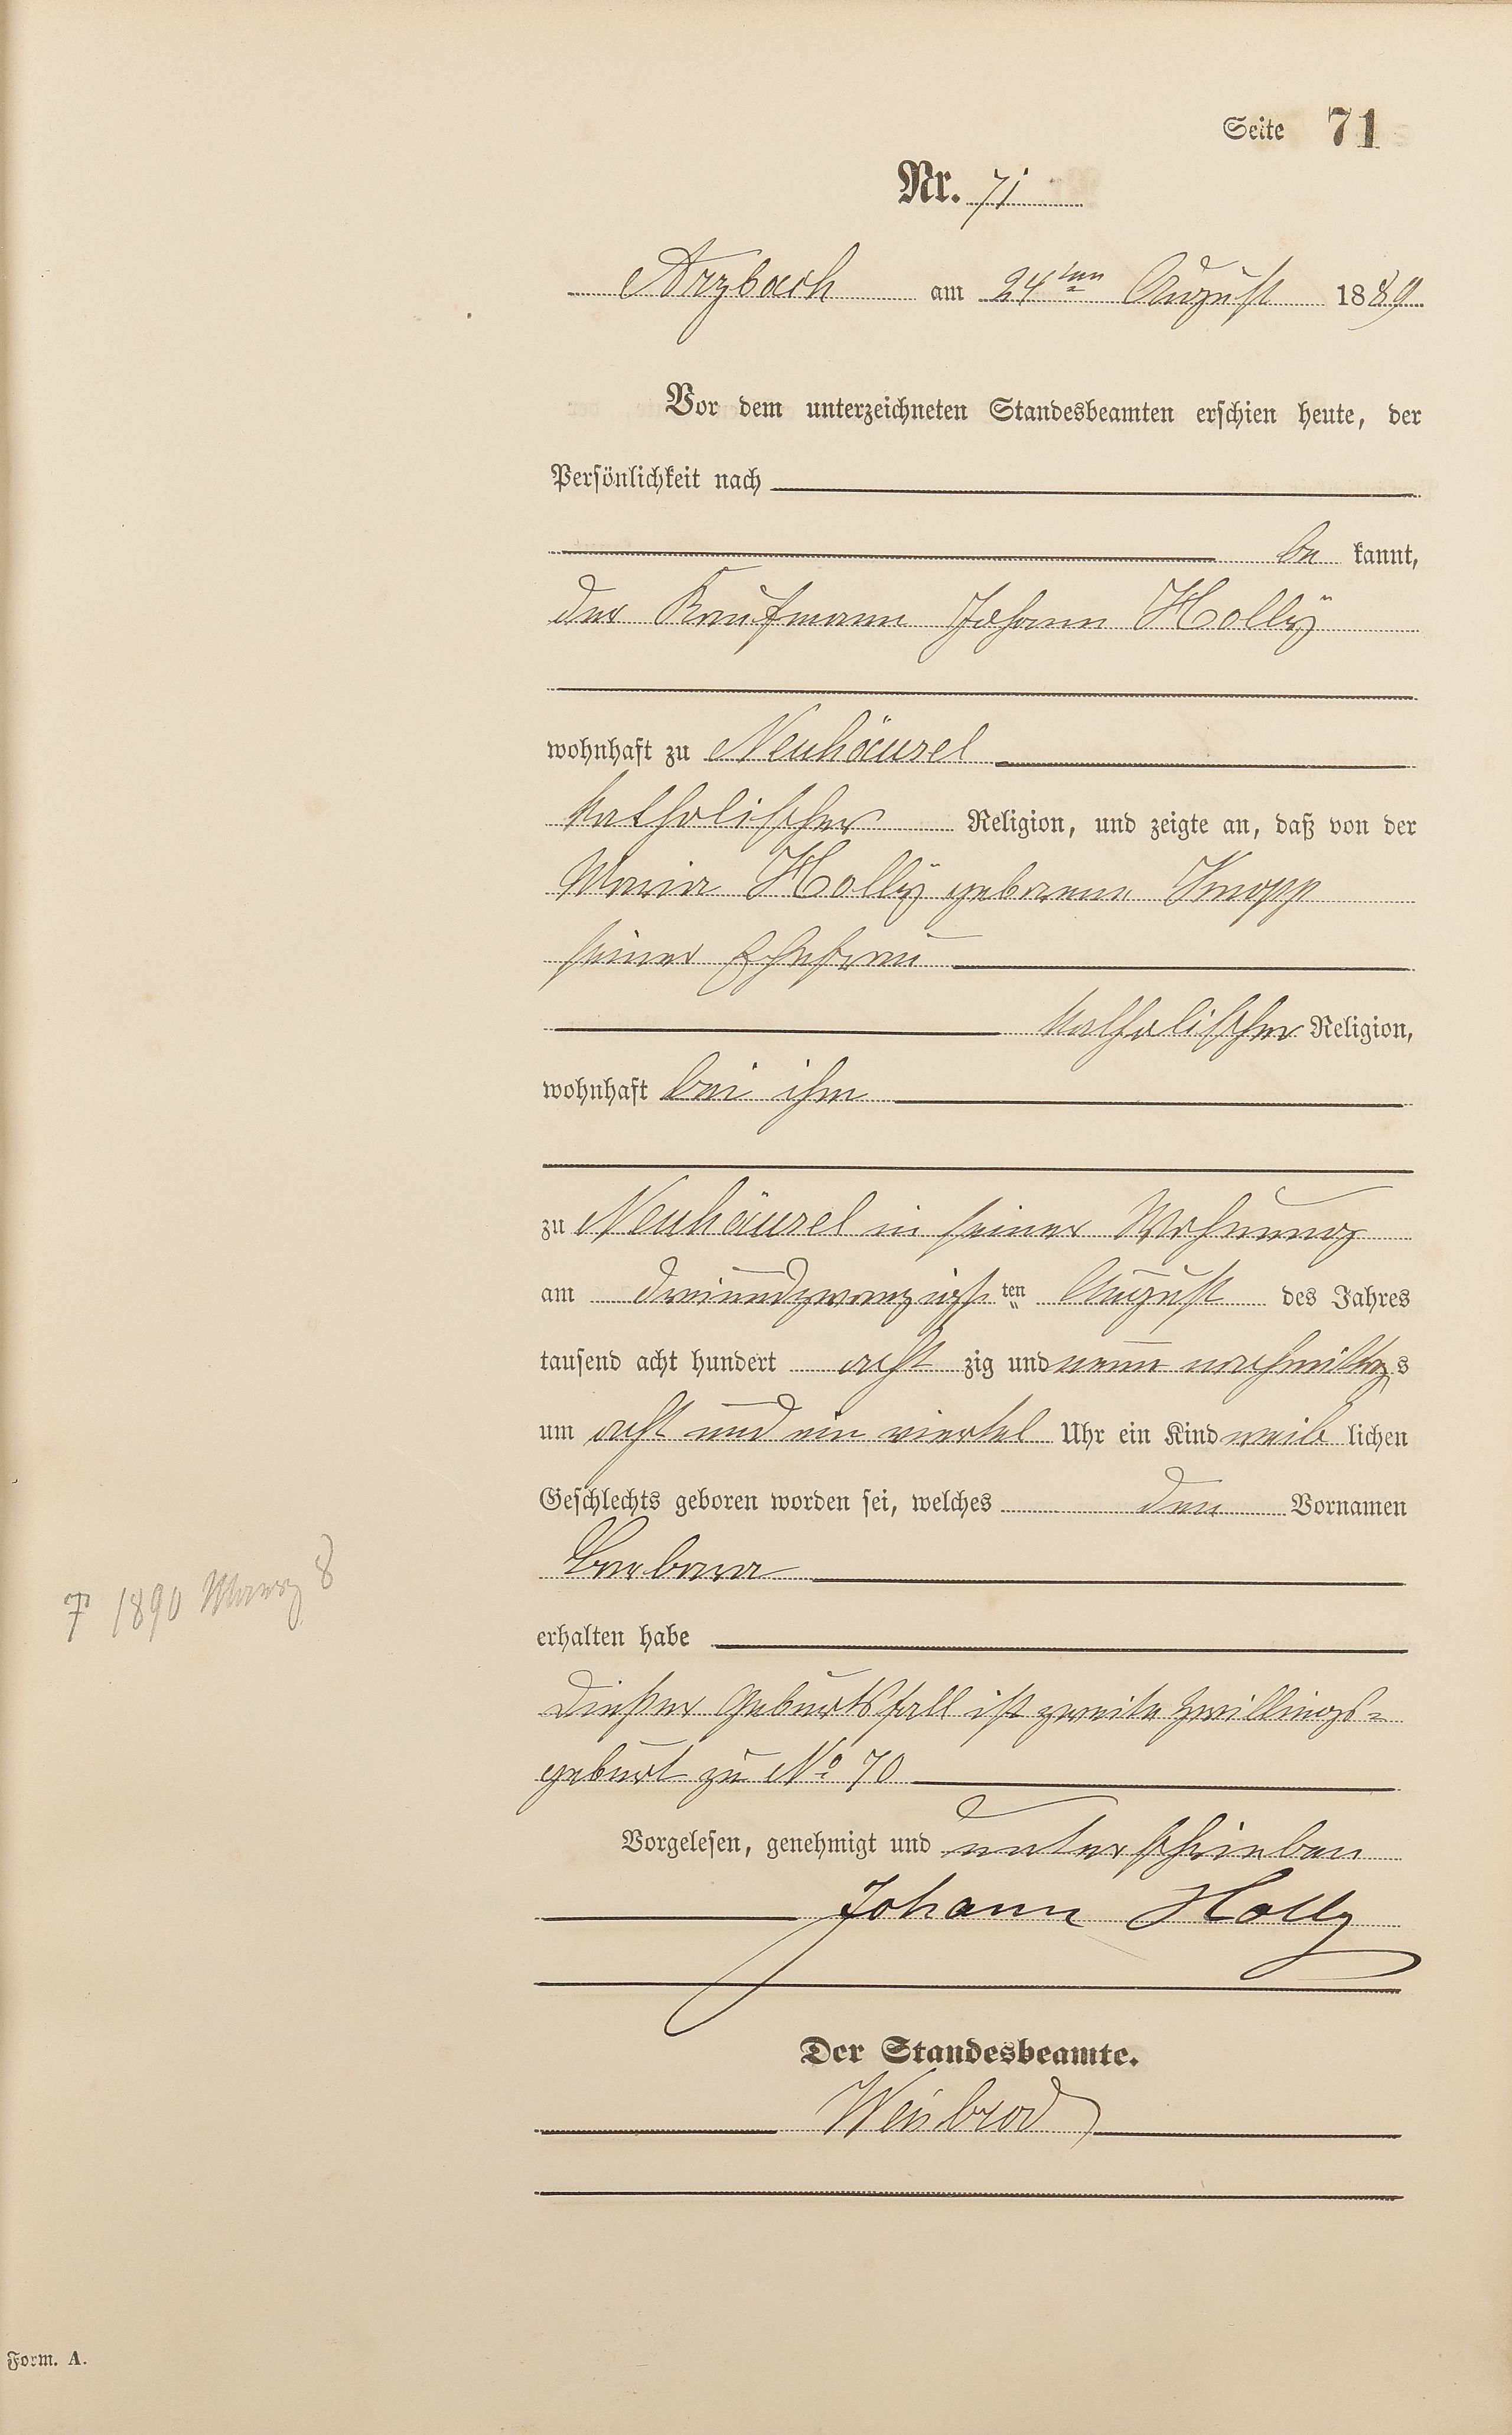 Seite 71
Nr. 71
Arzbach am 24ten August 1889
Vor dem unterzeichneten Standesbeamten erschien heute, der
Persönlichkeit nach
be kannt,
der Kaufmann Johann Hollÿ
wohnhaft zu Neuhäusel
katholischer Religion, und zeigte an, daß von der
Maria Hollÿ geborene Knopp
seiner Ehefrau
katholischer Religion,
wohnhaft bei ihm
zu Neuhäusel in seiner Wohnung
am dreiundzwanzigsten August des Jahres
tausend acht hundert acht zig und neun nachmittags
um acht und ein viertel Uhr ein Kind weib lichen
Geschlechts geboren worden sei, welches den Vornamen
Barbara
erhalten habe
Dießer Geburtsfall ist zweite Zwillings=
geburt zu No 70
Vorgelesen, genehmigt und unterschrieben
Johann Holly
Der Standesbeamte.
Weisbrod
† 1890 Maerz 8
Form. A.